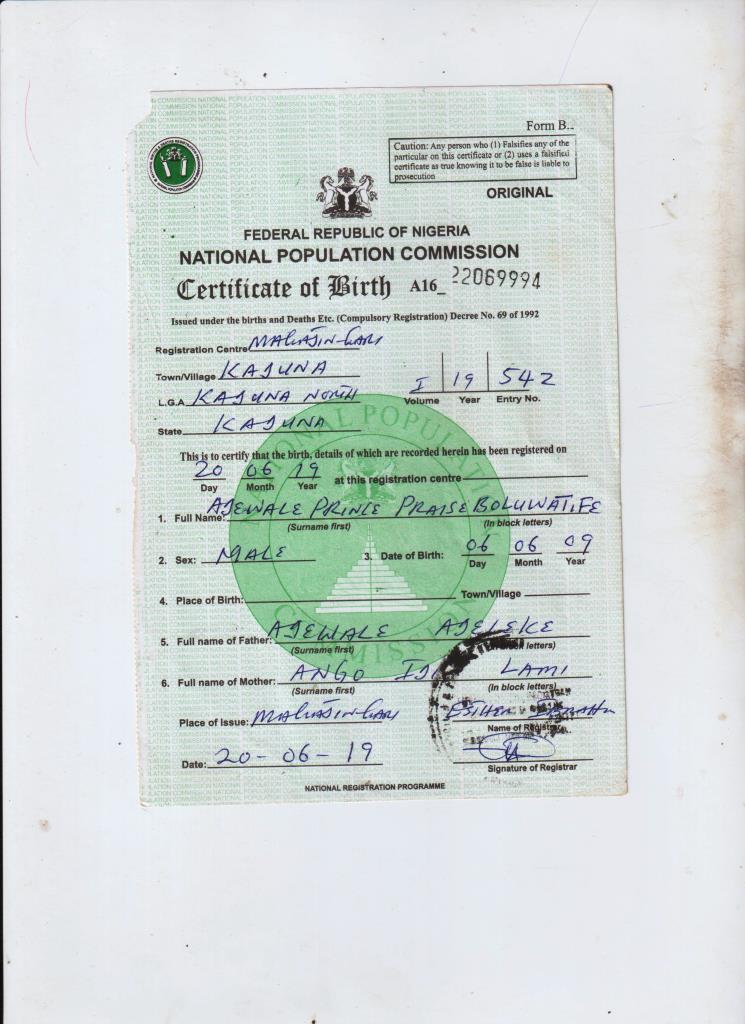 Form B..
Caution: Any person who (1) Falsifies any of the
particular on this certificate or (2) uses a falsified
certificate as true knowing it to be false is liable to
prosecution
ORIGINAL
FEDERAL REPUBLIC OF NIGERIA
NATIONAL POPULATION COMMISSION
Certificate of Birth A16_ 22069994
Issued under the births and Deaths Etc. (Compulsory Registration) Decree No. 69 of 1992
Registration Centre MAGAJIN-GARI
Town/Village KADUNA
I 19 542
L.G.A KADUNA NORTH
Volume Year Entry No.
State KADUNA
This is to certify that the birth, details of which are recorded herein has been registered on
20 06 19 at this registration centre
Day Month Year
1. Full Name: ADEWALE PRINCE PRAISE BOLUWATIFE
(Surname first) (In block letters)
2. Sex: MALE 3. Date of Birth: 06 06 09
Day Month Year
4. Place of Birth: Town/Village
5. Full name of Father: ADEWALE ADELEKE
(Surname first) (In block letters)
6. Full name of Mother: ANGO LAMI
(Surname first) (In block letters)
Place of Issue: MAGAJIN-GARI ESTHER
Name of Registrar
Date: 20-06-19
Signature of Registrar
NATIONAL REGISTRATION PROGRAMME